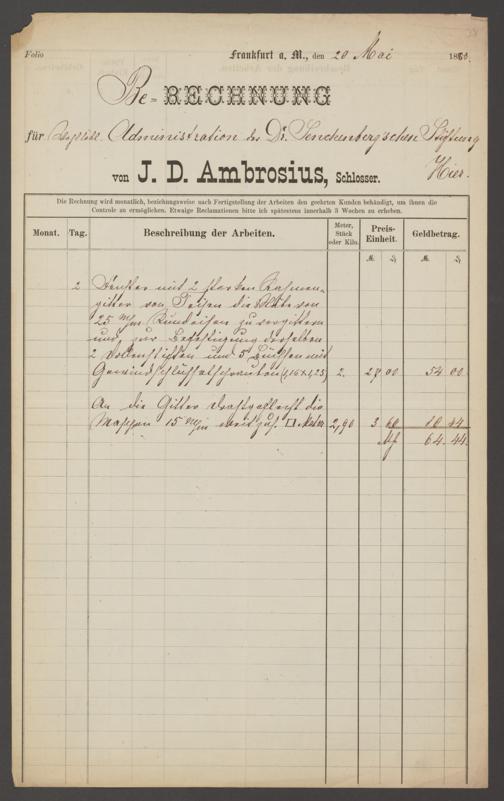 Folio
Frankfurt a. M., den 20 Mai 188
Be= RECHNUNG
für Administration der Dr. Senckenbergschen Stiftung
Hier.
von J. D. Ambrosius, Schlosser.
Die Rechnung wird monatlich, beziehungsweise nach Fertigstellung der Arbeiten den geehrten Kunden behändigt, um ihnen die
Controle zu ermöglichen. Etwaige Reclamationen bitte ich spätestens innerhalb 3 Wochen zu erheben.
Monat. Tag. Beschreibung der Arbeiten. Meter, Stück oder Kilo. Preis-Einheit. Geldbetrag.
M. ₰ M. ₰
2 Fenster mit 2 starken Rahmen-
gitter von Eisen die Stäbe von
25 m/m Rundeisen zu vergittern
und zur Befestigung derselben
2 und 5 mit
2. 27 00 54 00
An die Gitter Drahtgeflecht die
Maschen 15 m/m □ Meter 2,90 3. 60 10 44
M 64. 44.